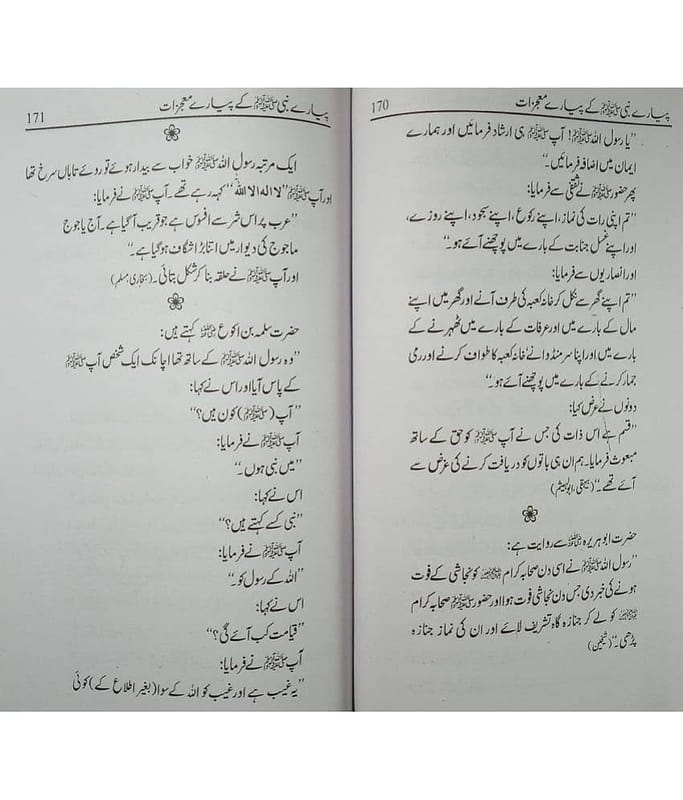 پیارے نبی ﷺ کے پیارے معجزات 170
”یا رسول اللہ ﷺ! آپ ﷺ ہی ارشاد فرمائیں اور ہمارے
ایمان میں اضافہ فرمائیں۔“
پھر حضور ﷺ نے ثقفی سے فرمایا:
”تم اپنی رات کی نماز، اپنے رکوع، اپنے سجود، اپنے روزے،
اور اپنے غسل جنابت کے بارے میں پوچھنے آئے ہو۔“
اور انصاریوں سے فرمایا:
”تم اپنے گھر سے نکل کر خانہ کعبہ کی طرف آنے اور گھر میں اپنے
مال کے بارے میں اور عرفات کے بارے میں ٹھہرنے کے
بارے میں اور اپنا سر منڈوانے خانہ کعبہ کا طواف کرنے اور رمی
جمار کرنے کے بارے میں پوچھنے آئے ہو۔“
دونوں نے عرض کیا:
”قسم ہے اس ذات کی جس نے آپ ﷺ کو حق کے ساتھ
مبعوث فرمایا۔ ہم ان ہی باتوں کو دریافت کرنے کی غرض سے
آئے تھے۔“ (بیہقی، ابو الہیثم)
حضرت ابو ہریرہ رضی اللہ عنہ سے روایت ہے:
”رسول اللہ ﷺ نے اسی دن صحابہ کرام رضی اللہ عنہم کو نجاشی کے فوت
ہونے کی خبر دی جس دن نجاشی فوت ہوا اور حضور ﷺ صحابہ کرام
رضی اللہ عنہم کو لے کر جنازہ گاہ تشریف لائے اور ان کی نماز جنازہ
پڑھی۔“ (شیخین)
پیارے نبی ﷺ کے پیارے معجزات 171
ایک مرتبہ رسول اللہ ﷺ خواب سے بیدار ہوئے تو روئے تاباں سرخ تھا
اور آپ ﷺ ”لا الہ الا اللہ“ کہہ رہے تھے۔ آپ ﷺ نے فرمایا:
”عرب پر اس شر سے افسوس ہے جو قریب آ گیا ہے۔ آج یاجوج
ماجوج کی دیوار میں اتنا بڑا شگاف ہو گیا ہے۔“
اور آپ ﷺ نے حلقہ بنا کر شکل بتائی۔ (بخاری، مسلم)
حضرت سلمہ بن اکوع رضی اللہ عنہ کہتے ہیں:
”وہ رسول اللہ ﷺ کے ساتھ تھا اچانک ایک شخص آپ ﷺ
کے پاس آیا اور اس نے کہا:
”آپ (ﷺ) کون ہیں؟“
آپ ﷺ نے فرمایا:
”میں نبی ہوں۔“
اس نے کہا:
”نبی کسے کہتے ہیں؟“
آپ ﷺ نے فرمایا:
”اللہ کے رسول کو۔“
اس نے کہا:
”قیامت کب آئے گی؟“
آپ ﷺ نے فرمایا:
”یہ غیب ہے اور غیب کو اللہ کے سوا (بغیر اطلاع کے) کوئی